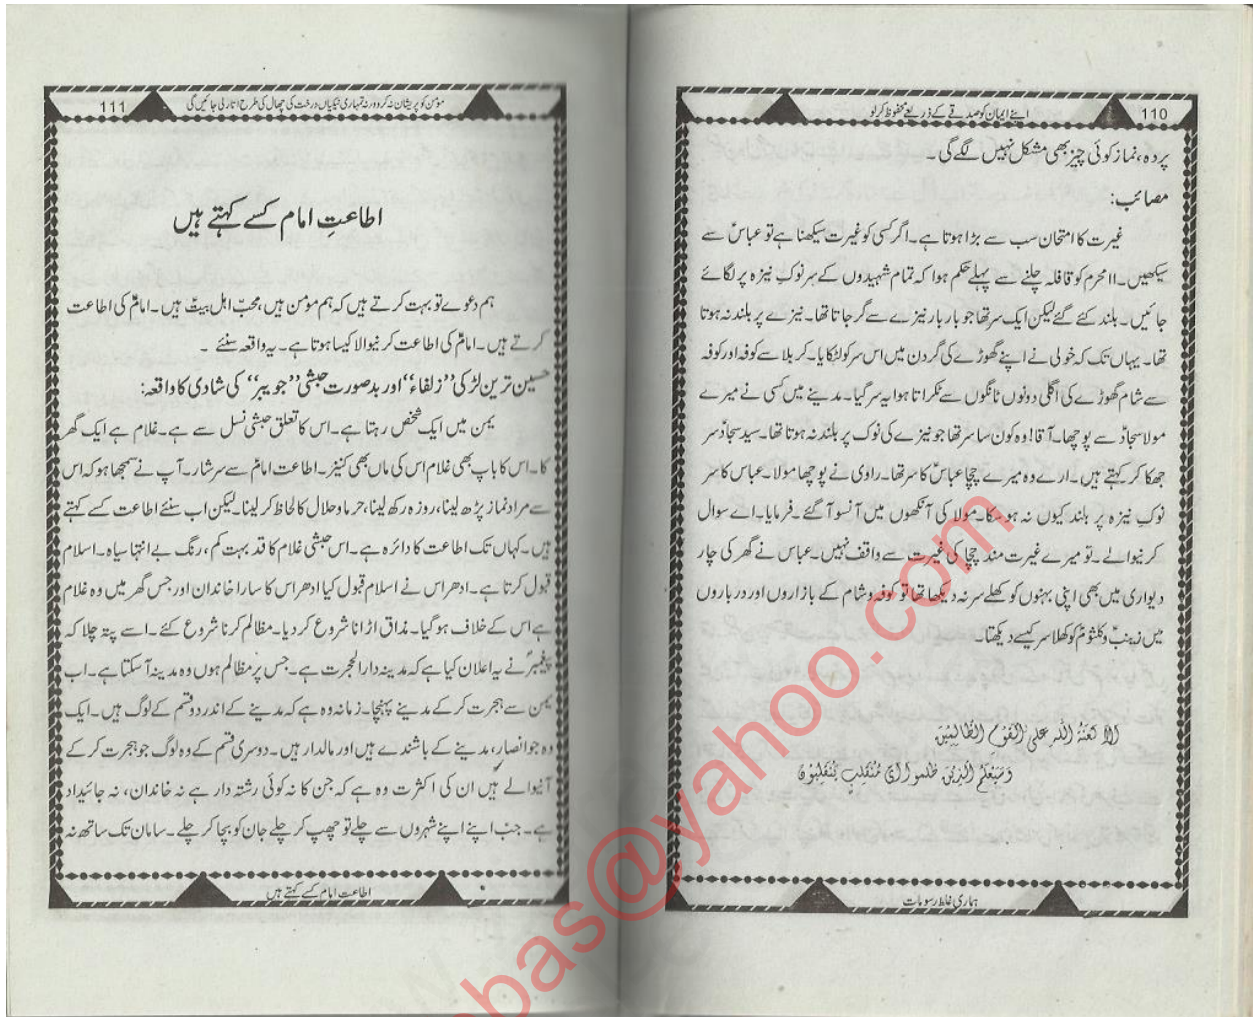 110
اپنے ایمان کو صدقے کے ذریعے محفوظ کرلو
پردہ، نماز کوئی چیز بھی مشکل نہیں لگے گی ۔
مصائب:
غیرت کا امتحان سب سے بڑا ہوتا ہے۔ اگر کسی کو غیرت سیکھنا ہے تو عباسؑ سے
سیکھیں۔ ۱۱ محرم کو قافلہ چلنے سے پہلے حکم ہوا کہ تمام شہیدوں کے سر نوکِ نیزہ پر لگائے
جائیں۔ بلند کئے گئے لیکن ایک سر تھا جو بار بار نیزے سے گر جاتا تھا۔ نیزے پر بلند نہ ہوتا
تھا۔ یہاں تک کہ خولی نے اپنے گھوڑے کی گردن میں اس سر کو لٹکایا۔ کربلا سے کوفہ اور کوفہ
سے شام گھوڑے کی اگلی دونوں ٹانگوں سے ٹکراتا ہوا یہ سر گیا۔ مدینے میں کسی نے میرے
مولا سجادؑ سے پوچھا۔ آقا! وہ کون سا سر تھا جو نیزے کی نوک پر بلند نہ ہوتا تھا۔ سید سجادؑ سر
جھکا کر کہتے ہیں۔ ارے وہ میرے چچا عباسؑ کا سر تھا۔ راوی نے پوچھا مولا۔ عباس کا سر
نوکِ نیزہ پر بلند کیوں نہ ہو سکا۔ مولا کی آنکھوں میں آنسو آگئے۔ فرمایا۔ اے سوال
کرنیوالے۔ تو میرے غیرت مند چچا کی غیرت سے واقف نہیں۔ عباس نے گھر کی چار
دیواری میں بھی اپنی بہنوں کو کھلے سر نہ دیکھا تھا تو کوفہ و شام کے بازاروں اور درباروں
میں زینبؑ و کلثومؑ کو کھلا سر کیسے دیکھتا۔
اَلَا لَعۡنَةُ اللّٰهِ عَلَى الۡقَوۡمِ الظَّالِمِيۡنَ
وَسَيَعۡلَمُ الَّذِيۡنَ ظَلَمُوۡا اَىَّ مُنۡقَلَبٍ يَّنۡقَلِبُوۡنَ
ہماری غلط رسومات
111
مومن کو پریشان نہ کرو ورنہ تمہاری نیکیاں درخت کی چھال کی طرح اتار لی جائیں گی
اطاعتِ امام کسے کہتے ہیں
ہم دعوے تو بہت کرتے ہیں کہ ہم مومن ہیں، محبِّ اہل بیتؑ ہیں۔ امامؑ کی اطاعت
کرتے ہیں۔ امامؑ کی اطاعت کرنیوالا کیسا ہوتا ہے۔ یہ واقعہ سنئے ۔
حسین ترین لڑکی ”زلفاء“ اور بدصورت حبشی ”جویبر“ کی شادی کا واقعہ:
یمن میں ایک شخص رہتا ہے۔ اس کا تعلق حبشی نسل سے ہے۔ غلام ہے ایک گھر
کا۔ اس کا باپ بھی غلام اس کی ماں بھی کنیز۔ اطاعت امامؑ سے سرشار۔ آپ نے سمجھا ہو کہ اس
سے مراد نماز پڑھ لینا، روزہ رکھ لینا، حرما وحلال کا لحاظ کر لینا۔ لیکن اب سنئے اطاعت کسے کہتے
ہیں۔ کہاں تک اطاعت کا دائرہ ہے۔ اس حبشی غلام کا قد بہت کم، رنگ بے انتہا سیاہ۔ اسلام
قبول کرتا ہے۔ ادھر اس نے اسلام قبول کیا ادھر اس کا سارا خاندان اور جس گھر میں وہ غلام
ہے اس کے خلاف ہو گیا۔ مذاق اڑانا شروع کر دیا۔ مظالم کرنا شروع کئے۔ اسے پتہ چلا کہ
پیغمبرؐ نے یہ اعلان کیا ہے کہ مدینہ دارالھجرت ہے۔ جس پر مظالم ہوں وہ مدینہ آ سکتا ہے۔ اب
یمن سے ہجرت کر کے مدینے پہنچا۔ زمانہ وہ ہے کہ مدینے کے اندر دو قسم کے لوگ ہیں۔ ایک
وہ جو انصار، مدینے کے باشندے ہیں اور مالدار ہیں۔ دوسری قسم کے وہ لوگ جو ہجرت کر کے
آنیوالے ہیں ان کی اکثرت وہ ہے کہ جن کا نہ کوئی رشتہ دار ہے نہ خاندان، نہ جائیداد
ہے۔ جب اپنے اپنے شہروں سے چلے تو چھپ کر چلے جان کو بچا کر چلے۔ سامان تک ساتھ نہ
اطاعت امام کسے کہتے ہیں
bas@yahoo.com